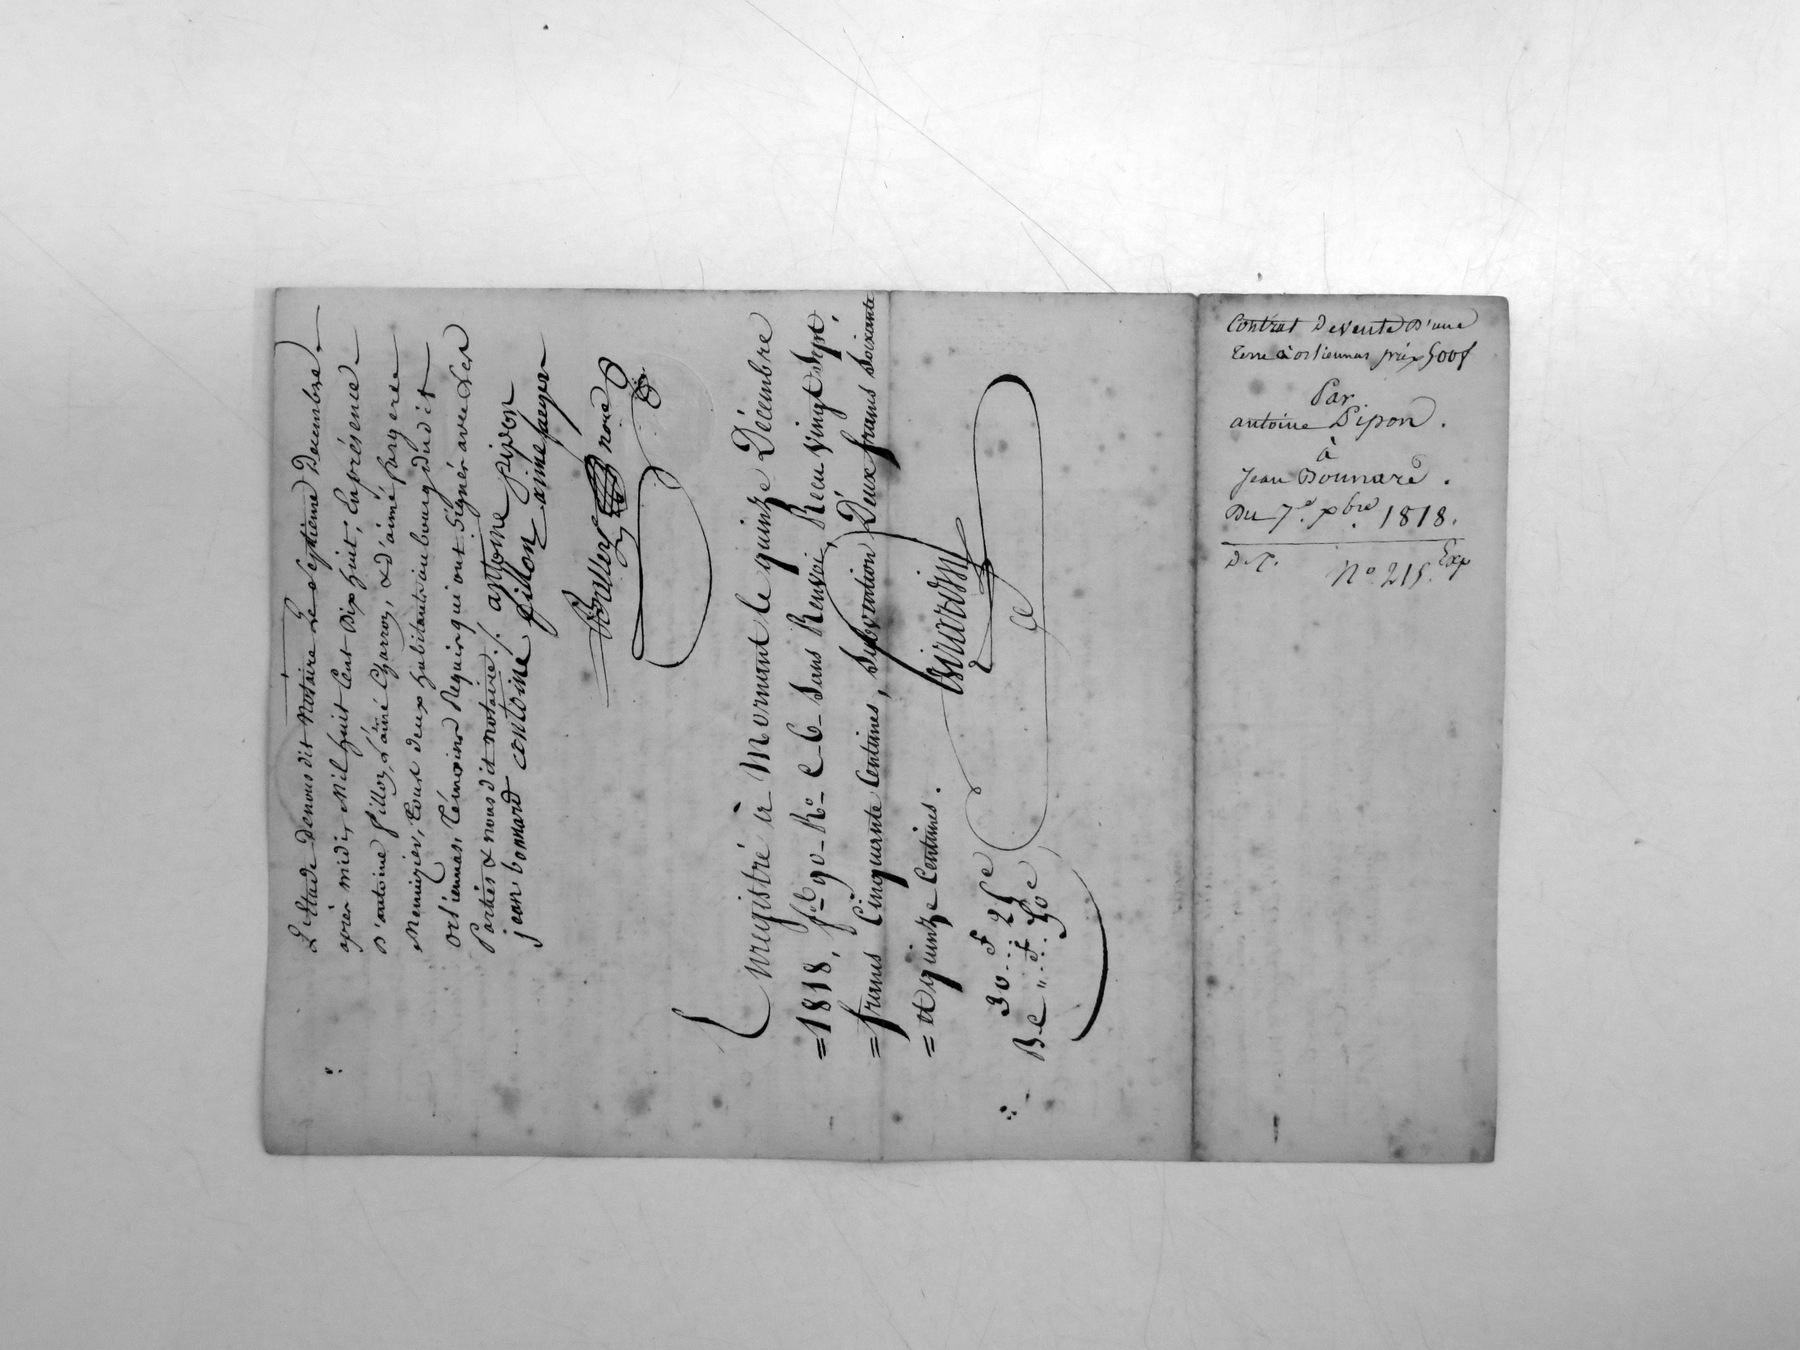 L'Etude de nous dit Notaire Le Septieme Decembre,
après midi, Mil huit Cent Dix huit; En présence
D'antoine fillon, L'ainé Charron, & d'aimé fargere
Menuizier, tous deux habitants au bourg dudit
orliennas, témoins Requis qui ont Signés avec Les
Parties & nous dit notaire ./. antoine pipon
jean bonnard antoine fillon aime farger
nore
Enregistré à Mornant le quinze Décembre
=1818, fo. 90 Ro C 6 Sans Renvoi, Recu vingt Sept,
=francs Cinquante Centimes, Subvention Deux francs Soixante
= et quinze Centimes.
30 F .. 25 c
B c " F .. 50 c
Contrat de vente D'une
terre à orliennas prix 500f
Par
antoine Pipon.
à
Jean Bonnard.
Du 7e. xbre 1818.
D.T. No 215. Exp